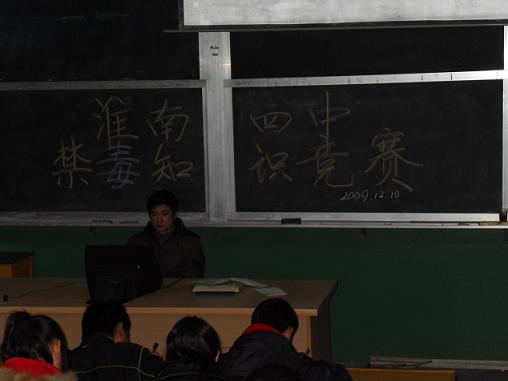 淮南四中
禁毒知识竞赛
2009.12.10